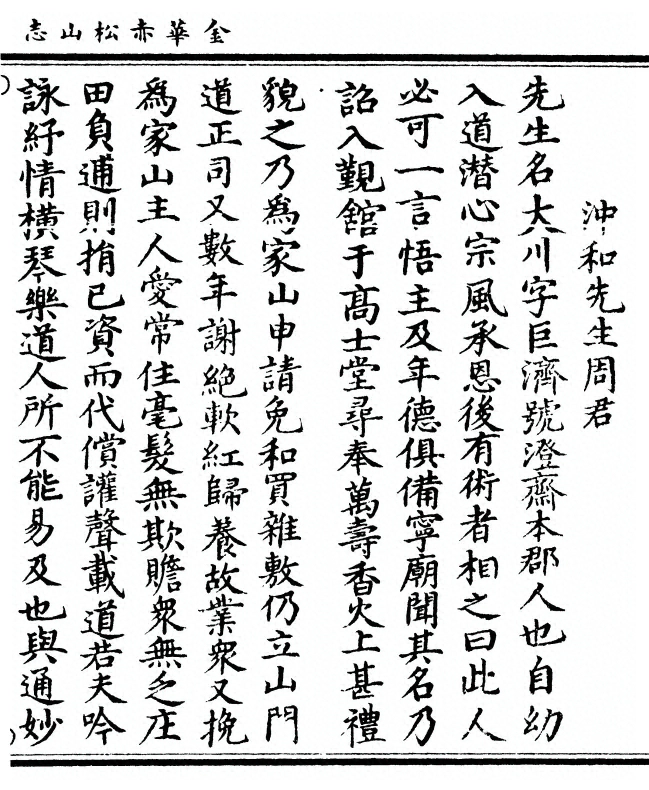 金華赤松山志
沖和先生周君
先生名大川字巨濟號澄齋本郡人也自幼
入道潛心宗風承恩後有術者相之曰此人
必可一言悟主及年德俱備寧廟聞其名乃
詔入覲館于髙士堂尋奉萬壽香火上甚禮
貌之乃爲家山申請免和買雜敷仍立山門
道正司又數年謝絶軟紅歸養故業衆又挽
爲家山主人愛常住毫髮無欺贍衆無乏庄
田負逋則捐已資而代償讙聲載道若夫吟
詠紓情横琴樂道人所不能易及也與通妙